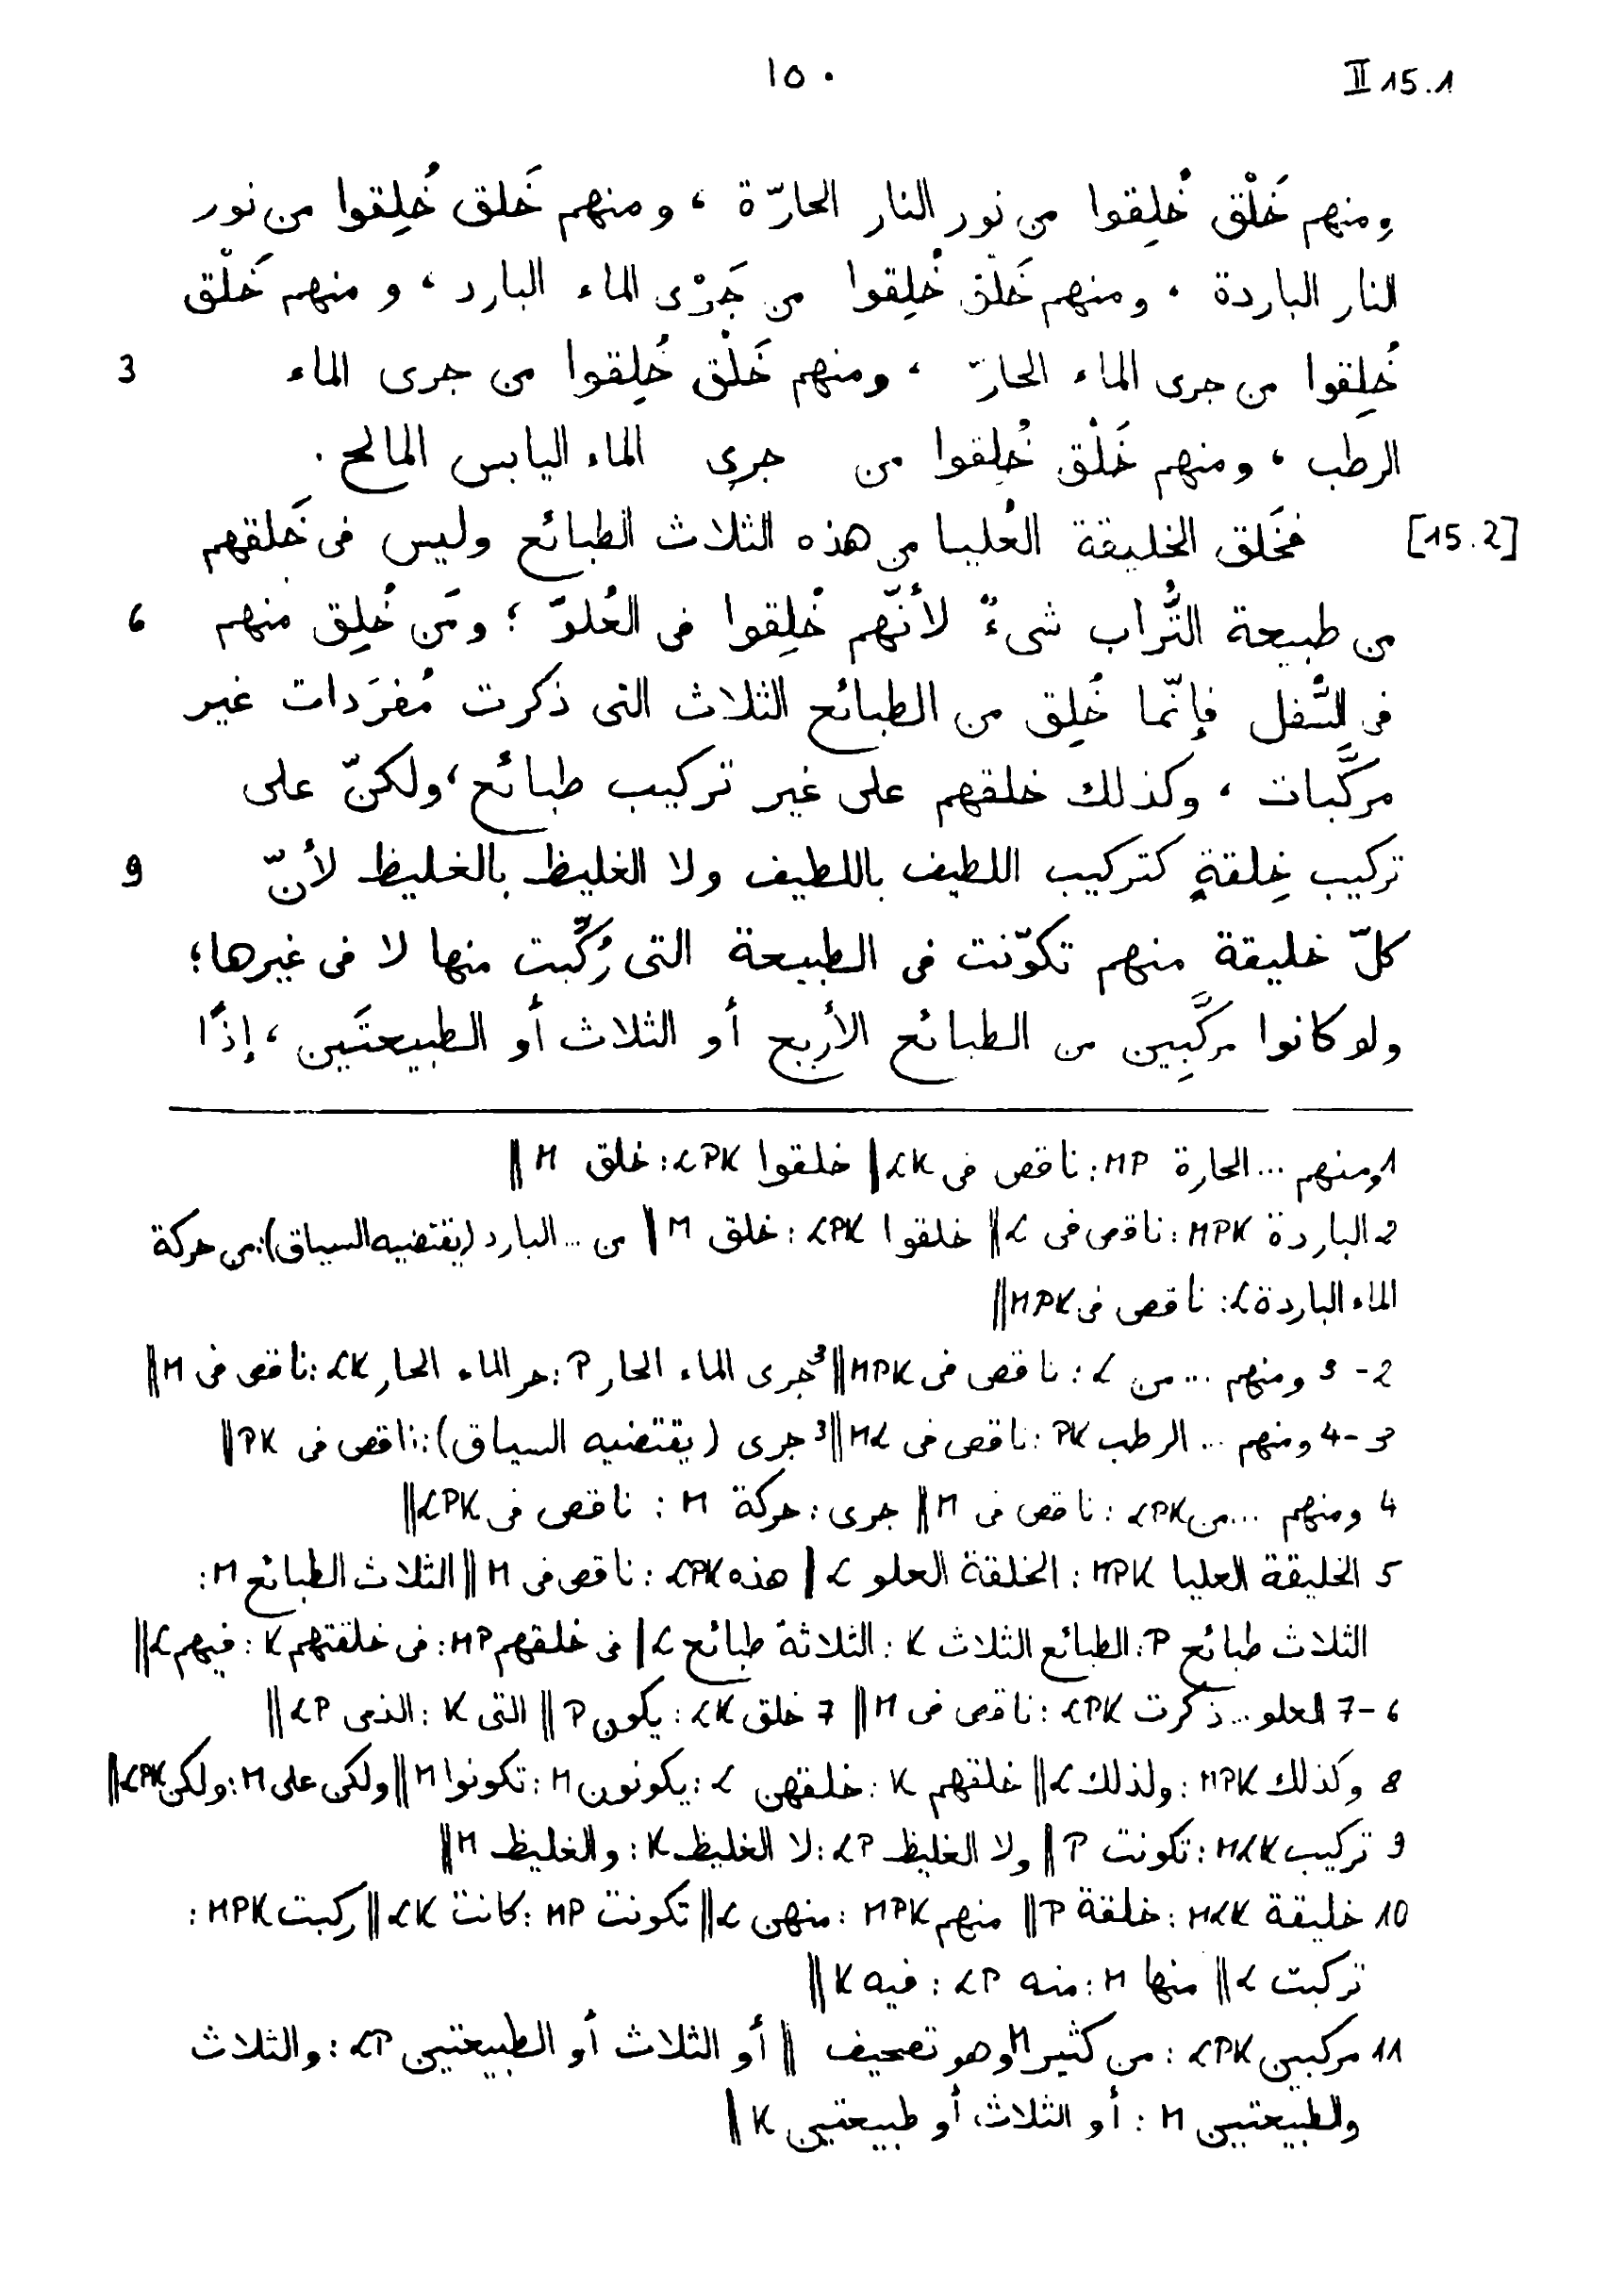 ١٥٠ II 15.1
ومنهم خَلْق خُلِقوا من نور النار الحارّة ، ومنهم خَلق خُلِقوا من نور
النار الباردة . ومنهم خَلْق خُلِقوا من جَرْى الماء البارد ، و منهم خَلْق
خُلِقوا من جرى الماء الحارّ ، ومنهم خَلْق خُلِقوا من جرى الماء 3
الرطب ، ومنهم خَلْق خُلِقوا من جرى الماء اليابس المالح .
[15.2] فخَلق الخليقة العُليا من هذه الثلاث الطبائع وليس فى خَلقهم
من طبيعة التُّراب شىءٌ لأنّهم خُلِقوا فى العُلوّ ؛ ومَن خُلِق منهم 6
فى السُّفل فإنّما خُلِق من الطبائع الثلاث التى ذكرت مُفرَدات غير
مركَّبات ، وكذلك خلقهم على غير تركيب طبائع ، ولكنّ على
تركيب خِلقةٍ كتركيب اللطيف باللطيف ولا الغليظ بالغليظ لأنّ 9
كلّ خليقة منهم تكوّنت فى الطبيعة التى رُكِّبت منها لا فى غيرها ؛
ولو كانوا مركَّبِين من الطبائع الأربع أو الثلاث أو الطبيعتَين ، إذًا
1 ومنهم ... الحارة MP : ناقص فى LK ‖ خلقوا LPK : خلق M ‖
2 الباردة MPK : ناقص فى L ‖ خلقوا LPK : خلق M ‖ من ... البارد (يقتضيه السياق) : من حركة
الماء الباردة L : ناقص فى MPK ‖
2 - 3 ومنهم ... من L : ناقص فى MPK ‖ 3 جرى الماء الحار P : حر الماء الحار LK : ناقص فى M ‖
3 - 4 ومنهم ... الرطب PK : ناقص فى ML ‖ 3 جرى (يقتضيه السياق) : ناقص فى PK ‖
4 ومنهم ... من LPK : ناقص فى M ‖ جرى : حركة M : ناقص فى LPK ‖
5 الخليقة العليا MPK : الخلقة العلو L ‖ هذه LPK : ناقص فى M ‖ الثلاث الطبائع M :
الثلاث طبائع P : الطبائع الثلاث K : الثلاثة طبائع L ‖ فى خلقهم MP : فى خلقتهم K : فيهم L ‖
6 - 7 العلو ... ذكرت LPK : ناقص فى M ‖ 7 خلق LK : يكون P ‖ التى K : الذى LP ‖
8 وكذلك MPK : ولذلك L ‖ خلقهم K : خلقهن L : يكونون M : تكونوا M ‖ ولكن على M : ولكن LPK ‖
9 تركيب MLK : تكونت P ‖ ولا الغليظ LP : لا الغليظ K : والغليظ M ‖
10 خليقة MLK : خلقة P ‖ منهم MPK : منهن L ‖ تكونت MP : كانت LK ‖ ركبت MPK :
تركبت L ‖ منها M : منه LP : فيه K ‖
11 مركبين LPK : من كثير M وهو تصحيف ‖ أو الثلاث أو الطبيعتين LP : والثلاث
والطبيعتين M : أو الثلاث أو طبيعتين K ‖